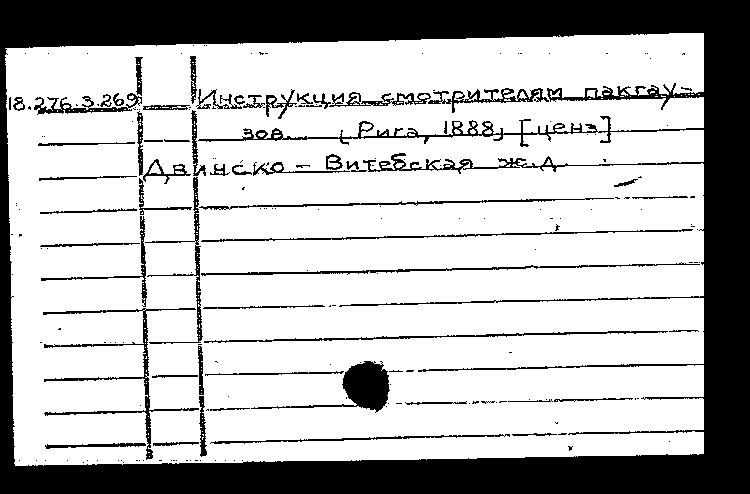 18.276.3.269 Инструкция смотрителям пакгау-
зов. (Рига, 1888) [ценз]
Двинско - Витебская ж.д.